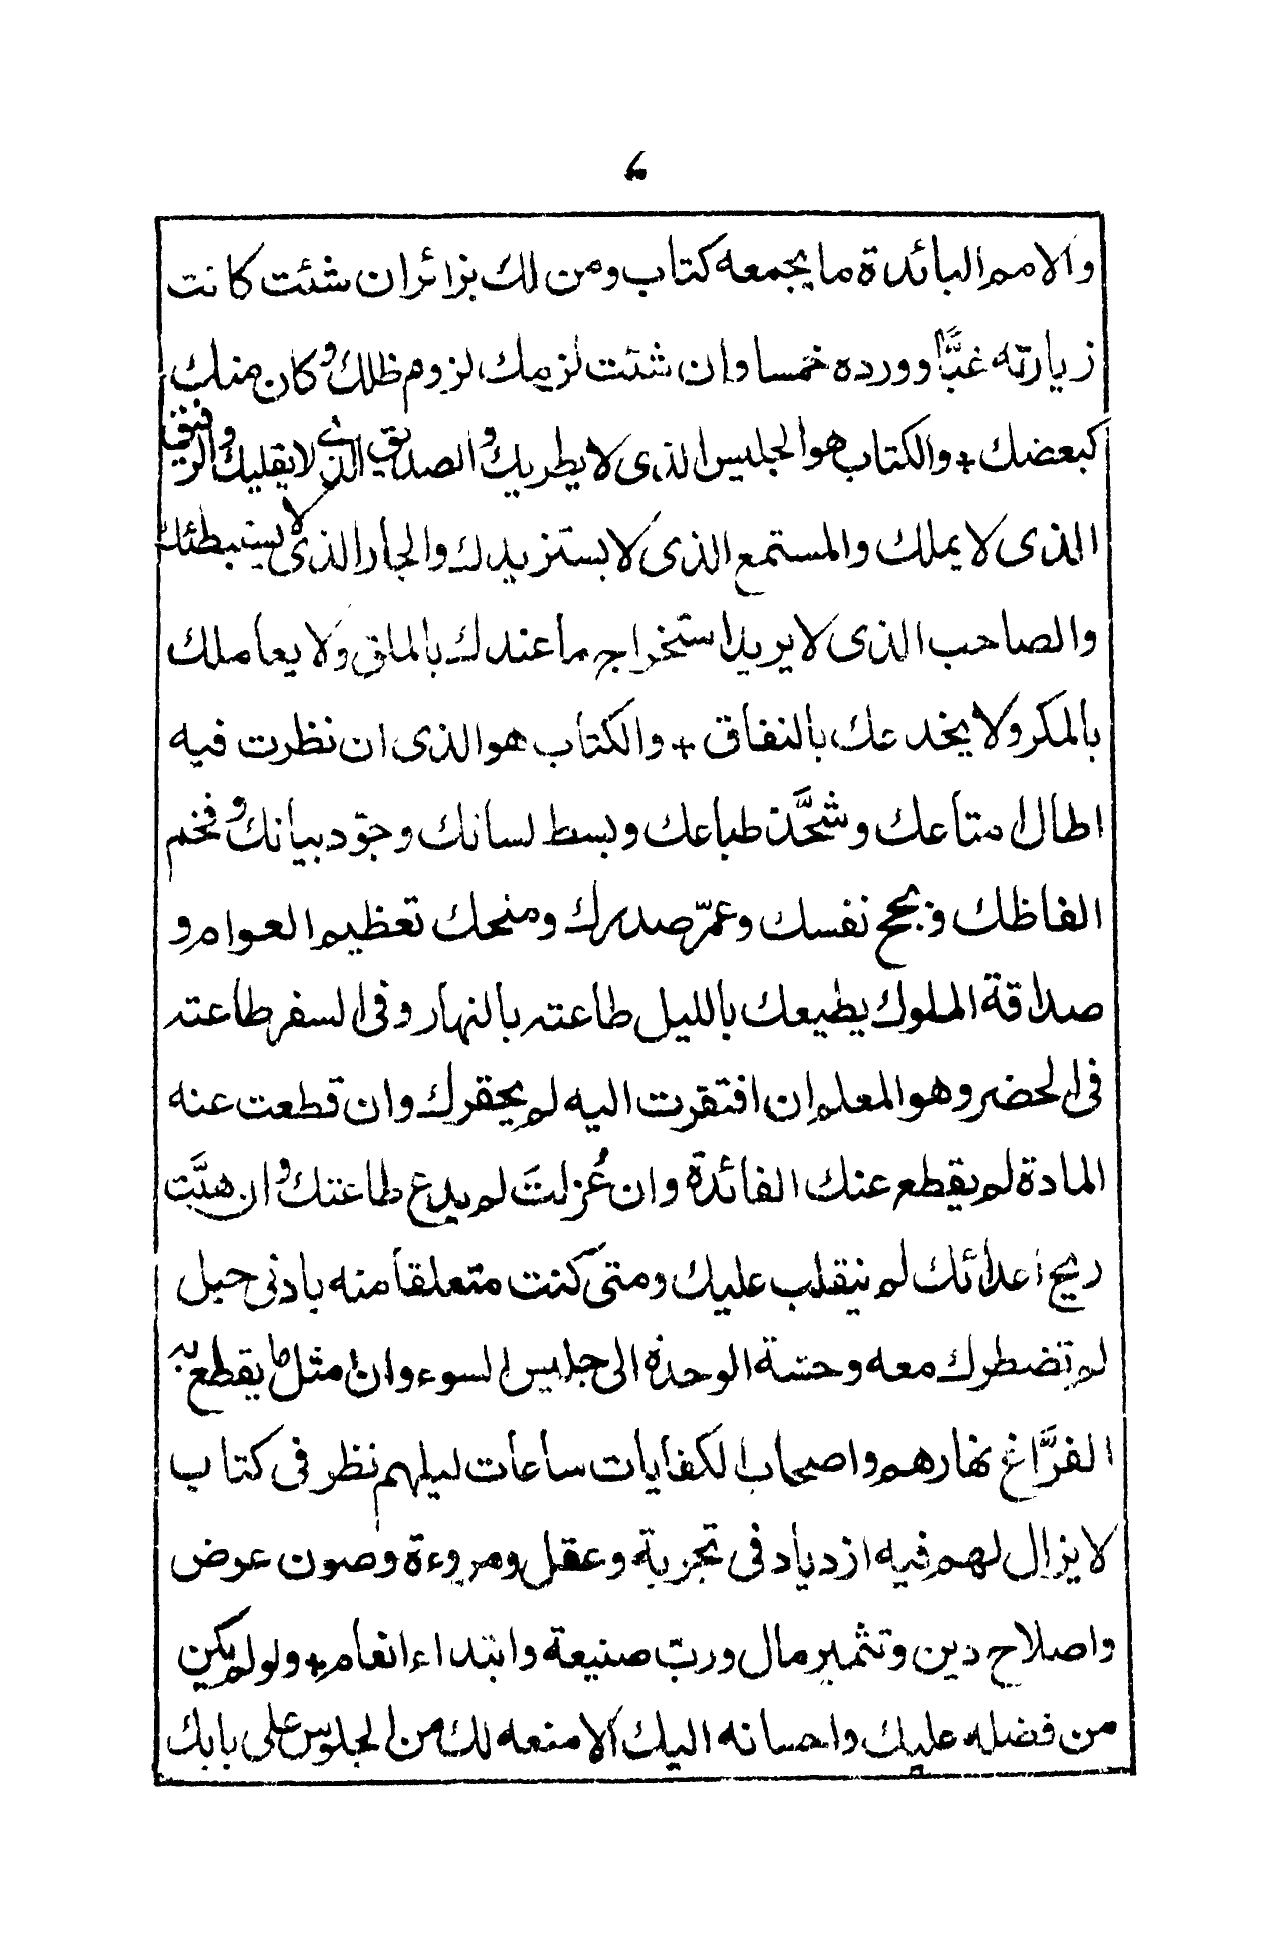 والامم البائدة ما يجمعه كتاب ومن لك بزائر ان شئت كانت
زيارته غبًّا وورده خمسا وان شئت لزمك لزوم ظلك وكان منك
كبعضك + والكتاب هو الجليس الذى لا يطريك والصديق الذى لا يقليك والرفيق
الذى لا يملك والمستمع الذى لا يستزيدك والجار الذى لا يستبطئك
والصاحب الذى لا يريد استخراج ما عندك بالملق ولا يعاملك
بالمكر ولا يخدعك بالنفاق + والكتاب هو الذى ان نظرت فيه
اطال امتاعك وشحَّذ طباعك وبسط لسانك وجوّد بيانك وفخم
الفاظك وبجح نفسك وعمّر صدرك ومنحك تعظيم العوام و
صداقة الملوك يطيعك بالليل طاعته بالنهار وفى السفر طاعته
فى الحضر وهو المعلم ان افتقرت اليه لم يحقرك وان قطعت عنه
المادة لم يقطع عنك الفائدة وان عُزلتَ لم يدع طاعتك وان هبَّت
ريح اعدائك لم ينقلب عليك ومتى كنت متعلقا منه بادنى حبل
لم تضطرك معه وحشة الوحدة الى جليس السوء وان امثل ما يقطع به
الفرَّاغ نهارهم واصحاب الكفايات ساعات ليلهم نظر فى كتاب
لا يزال لهم فيه ازدياد فى تجربة وعقل ومروءة وصون عرض
واصلاح دين وتثمير مال وربّ صنيعة وابتداء انعام + ولو لم يكن
من فضله عليك واحسانه اليك الا منعه لك من الجلوس على بابك